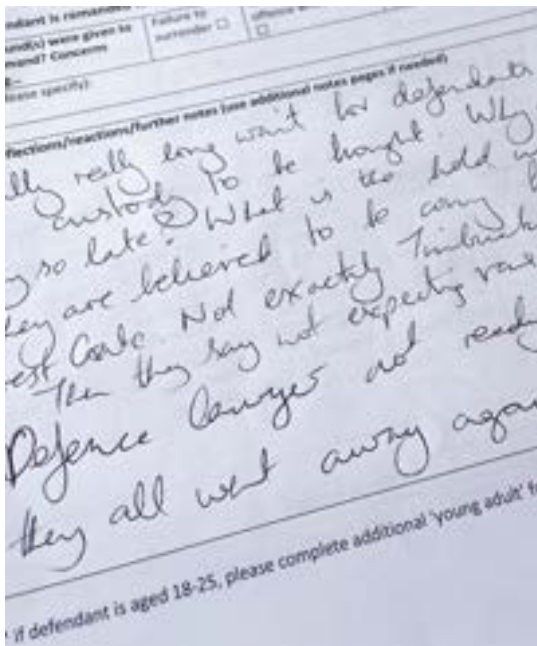 endant is remanded
and(s) were given to
mand? Concerns
Failure to
surrender
offence
lease specify):
flections/reactions/further notes (use additional notes pages if needed)
lly really long wait for defendants
custody to be brought. Why
so late? What is the hold
ey are believed to be coming
est Gate. Not exactly
Then they say not expecting
Defence lawyer not ready
they all went away again
if defendant is aged 18-25, please complete additional 'young adult' f